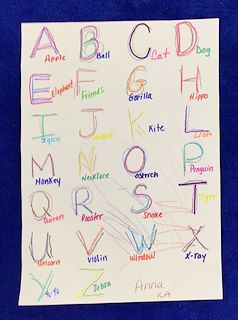 A B C D
Apple Ball Cat Dog
E F G H
Elephant Friends Gorilla Hippo
I J K L
Igloo Kite Lion
M N O P
Monkey Necklace Penguin
Q R S T
Queen Rooster Snake Tiger
U V W X
Unicorn Violin Window X-ray
Y Z
Yo-Yo Zebra
Anna
KA